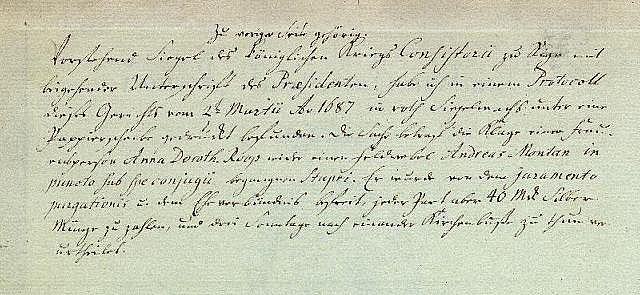 Zu voriger Seite gehörig.
Vorstehend Siegel des Königlichen Kriegs Consistorii zu Riga mit
beigehender Unterschrift des Præsidenten, habe ich in einem Protocoll
dieses Gerichts vom 2t Martii Ao 1687 in roth Siegelwachs unter eine
Papierscheibe gedruckt befunden. Die Sache betraf die Klage einer Frau-
ensperson Anna Doroth. Roop wider einen Andreas Montan in
puncto sub spe conjugii begangenen Stupri. Er wurde von dem juramento
purgationis u. dem Eheverbündnis befreit, jeder Part aber 40 Mk Silber
Münze zu zahlen, und drei Sonntage nach einander Kirchenbuße zu thun ver-
urtheilet.